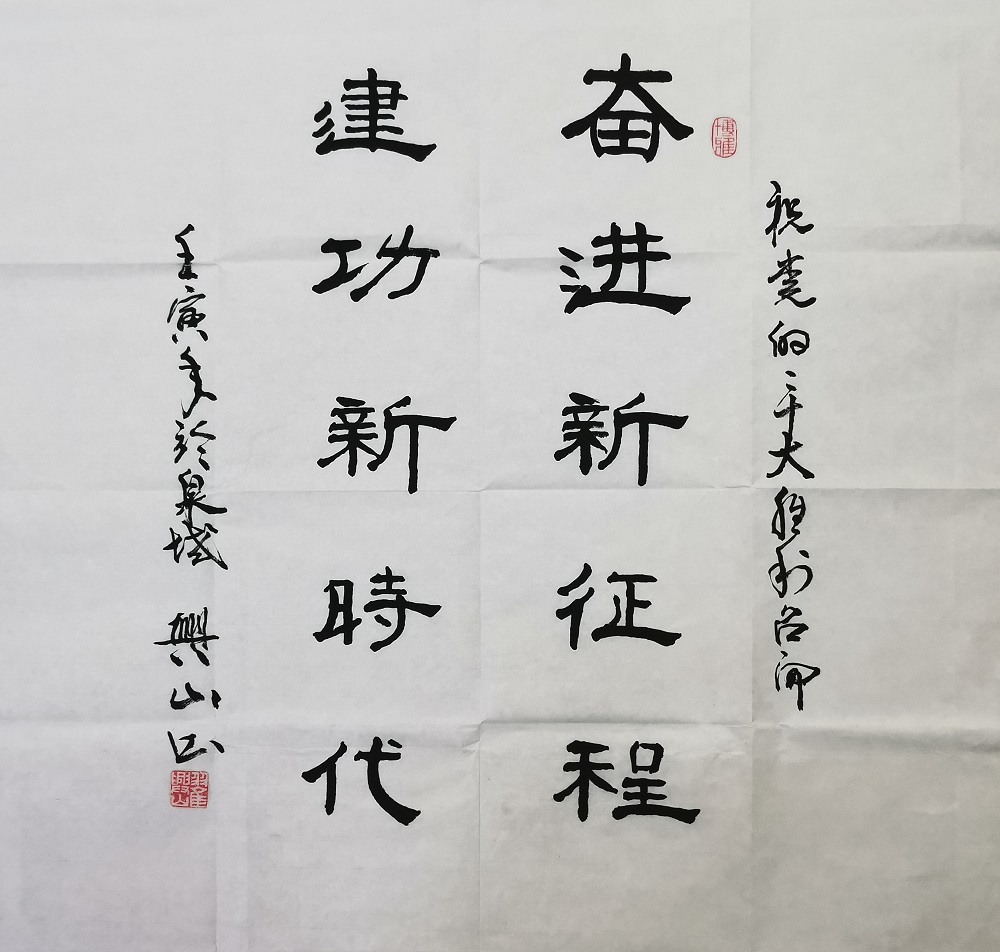 祝党的二十大胜利召开
博雅
奋进新征程
建功新時代
壬寅年於泉城 興山书
翟興山